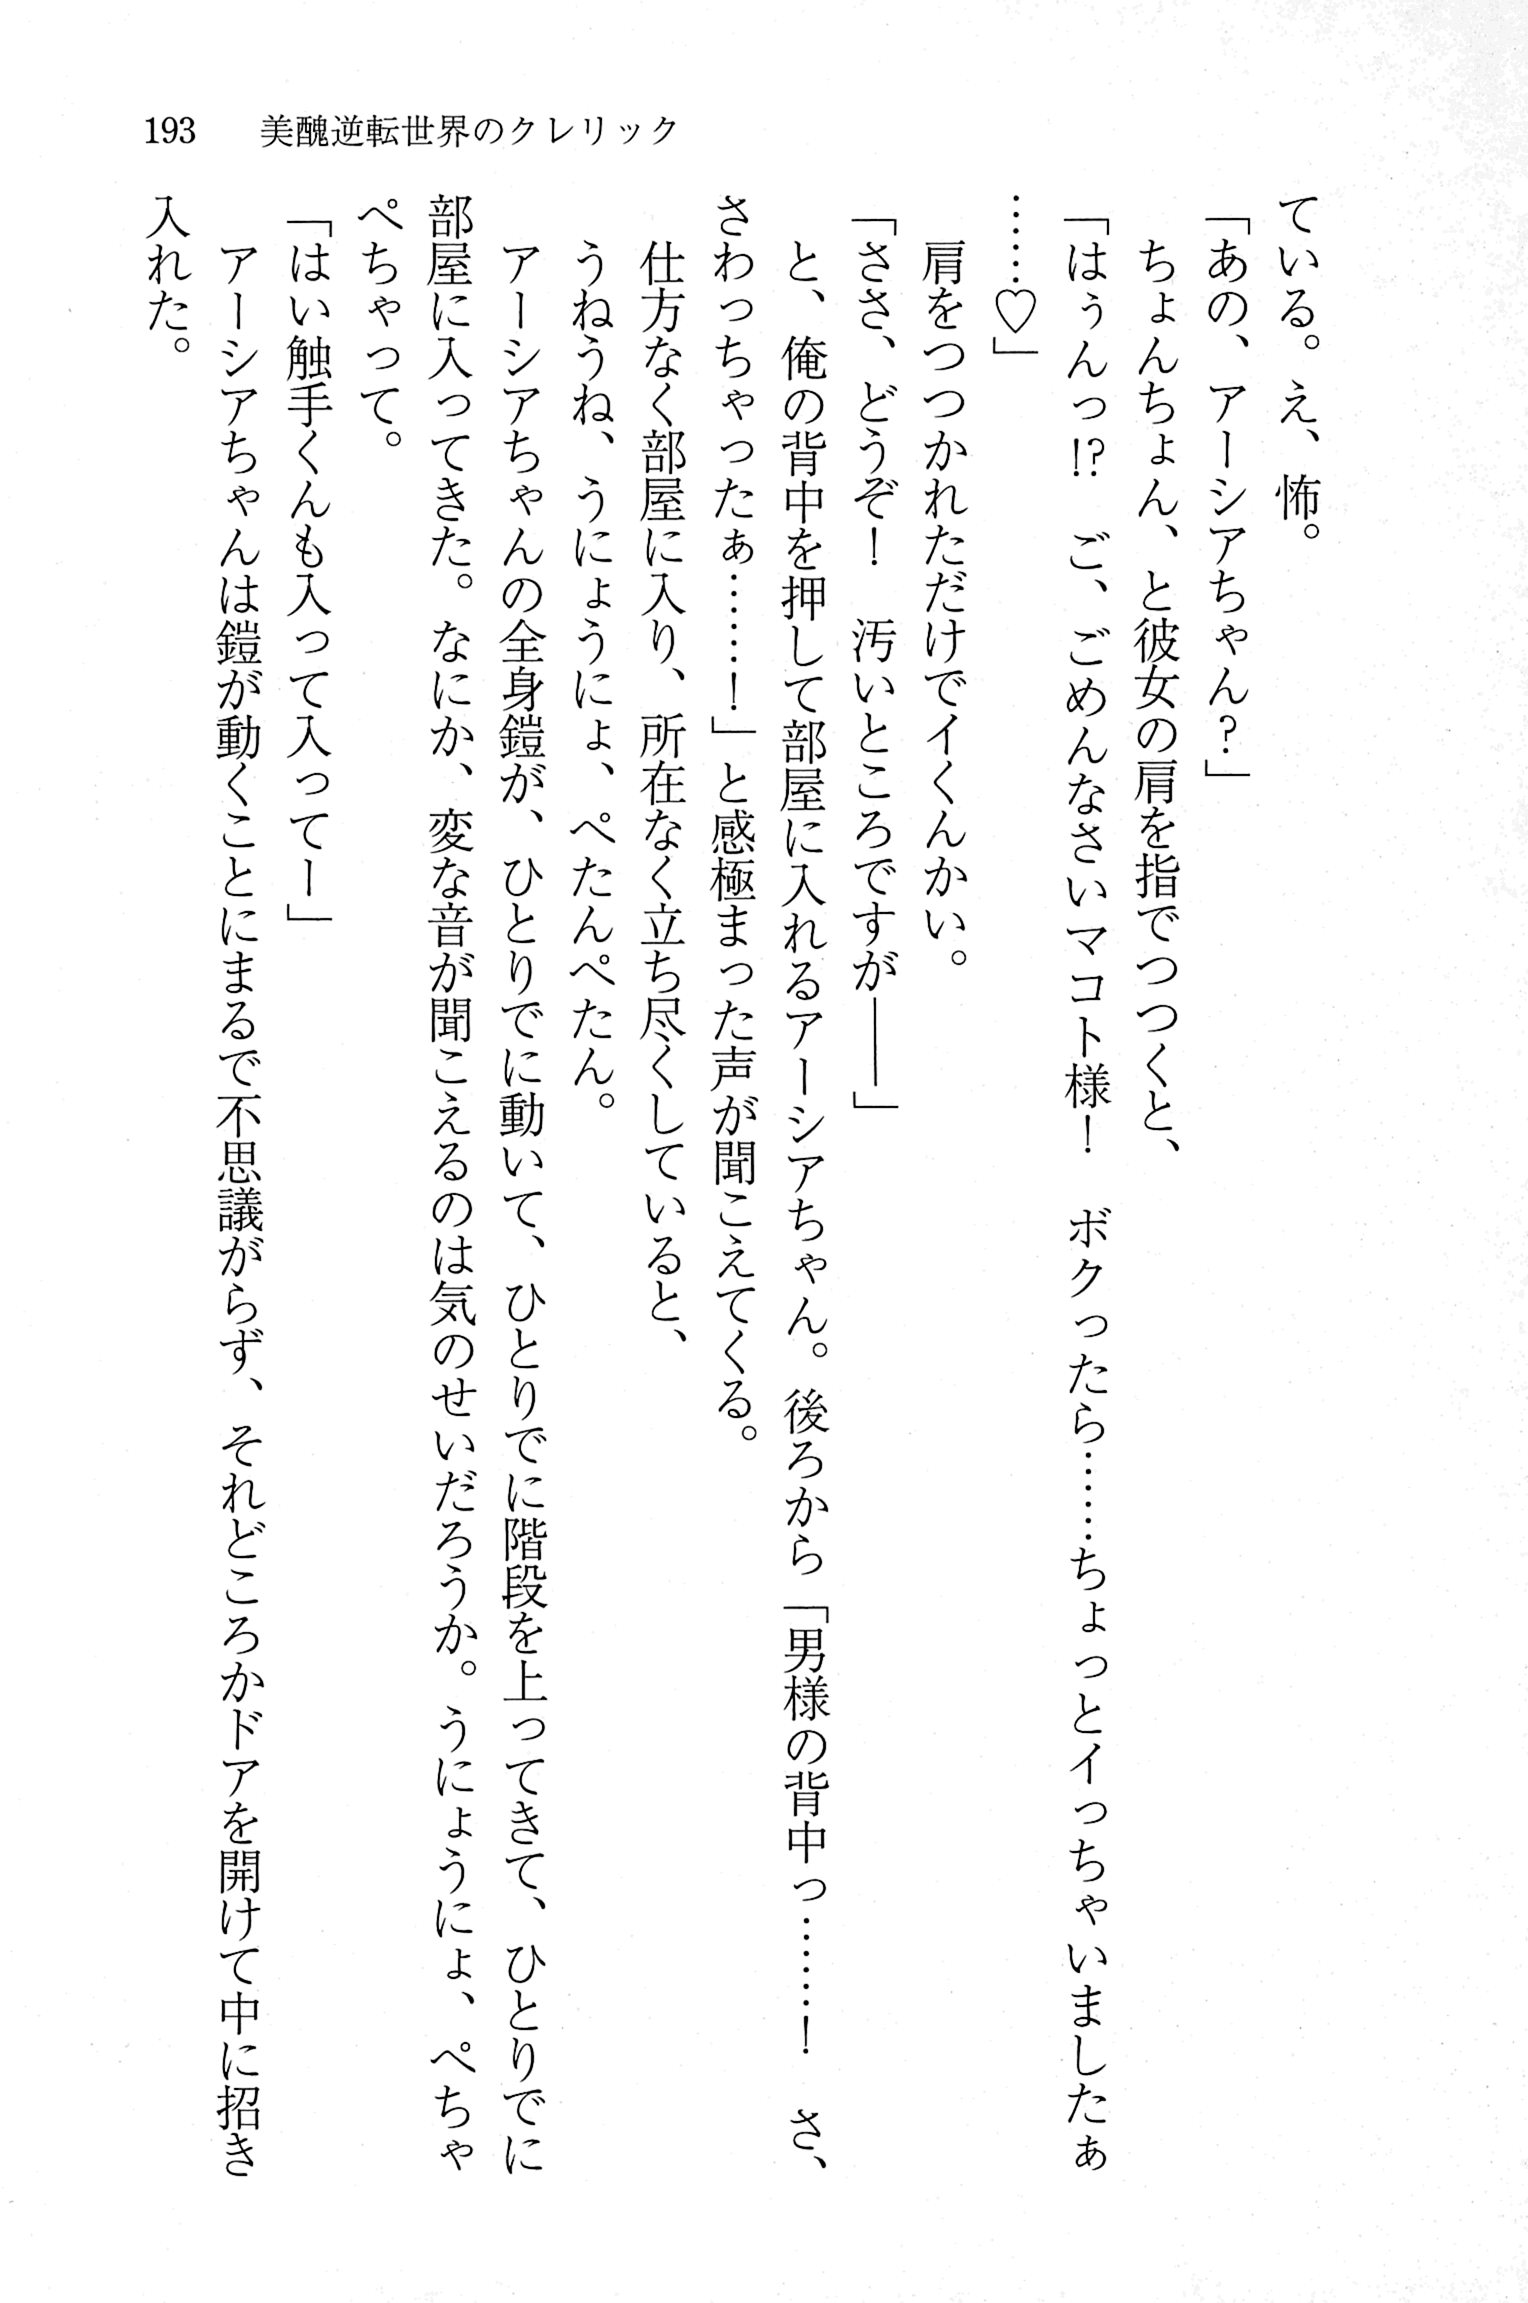 193　美醜逆転世界のクレリック
ている。え、怖。
「あの、アーシアちゃん？」
　ちょんちょん、と彼女の肩を指でつつくと、
「はぅんっ!?　ご、ごめんなさいマコト様！　ボクったら……ちょっとイっちゃいましたぁ
……♡」
　肩をつつかれただけでイくんかい。
「ささ、どうぞ！　汚いところですが――」
　と、俺の背中を押して部屋に入れるアーシアちゃん。後ろから「男様の背中っ……！　さ、
さわっちゃったぁ……！」と感極まった声が聞こえてくる。
　仕方なく部屋に入り、所在なく立ち尽くしていると、
　うねうね、うにょうにょ、ぺたんぺたん。
　アーシアちゃんの全身鎧が、ひとりでに動いて、ひとりでに階段を上ってきて、ひとりでに
部屋に入ってきた。なにか、変な音が聞こえるのは気のせいだろうか。うにょうにょ、ぺちゃ
ぺちゃって。
「はい触手くんも入って入ってー」
　アーシアちゃんは鎧が動くことにまるで不思議がらず、それどころかドアを開けて中に招き
入れた。